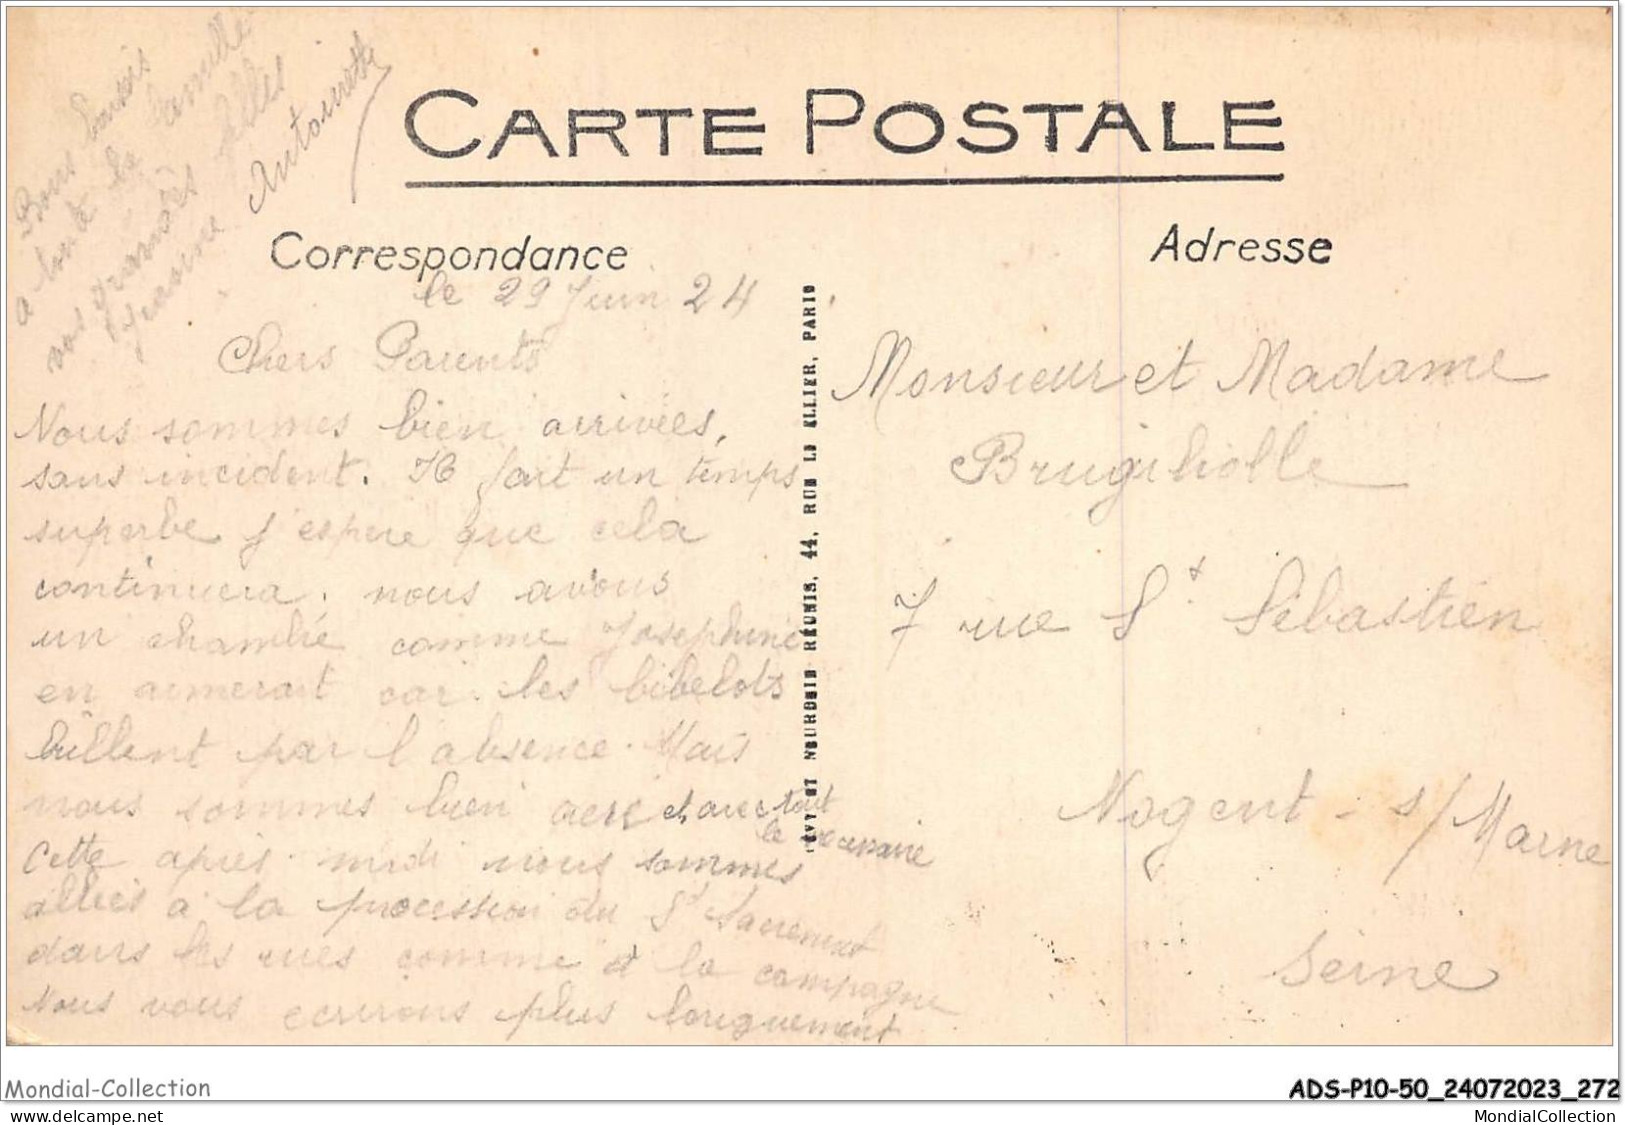 CARTE POSTALE
Correspondance
Adresse
le 29 Juin 24
Chers Parents
Nous sommes bien arrivées,
sans incident. Il fait un temps
superbe j'espere que cela
continuera. nous avons
un chambre comme Josephine
en aimerait car les bibelots
brillent par l'absence. Mais
nous sommes bien et avec tout
le necessaire
Cette après midi nous sommes
allées à la procession du St Sacrement
dans les rues comme à la campagne
Nous vous ecrirons plus longuement
Bons baisers
a toute la famille
vos grandes filles
Antoinette
ND PHOT NEURDEIN RÉUNIS, 44, RUE LETELLIER, PARIS
Monsieur et Madame
7 rue St Sébastien
Nogent - s/Marne
Seine
Mondial-Collection
ADS-P10-50_24072023_272
www.delcampe.net
MondialCollection